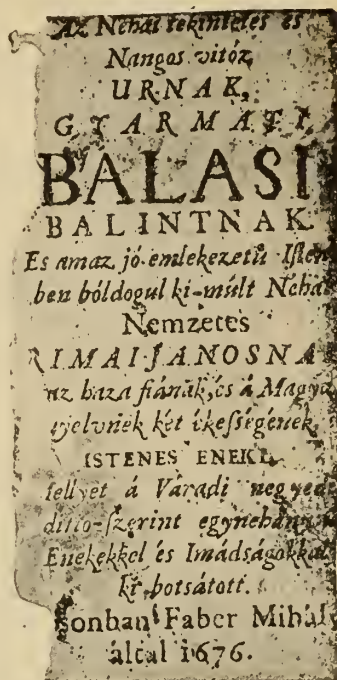 Az Néhai tekintetes és
Nangos vitéz
URNAK,
GYARMATI
BALASI
BALINTNAK
Es amaz jó emlekezetű Isten
ben bóldogul ki-múlt Néhai
Nemzetes
RIMAI JANOSNA
az haza fiának, és á Magya
nyelvnek két ékességének,
ISTENES ENEKE
mellyet á Váradi negyed
ditio-szerint egynehány
Enekekkel és Imádságokkal
ki-botsátott.
sonban Faber Mihály
által 1676.